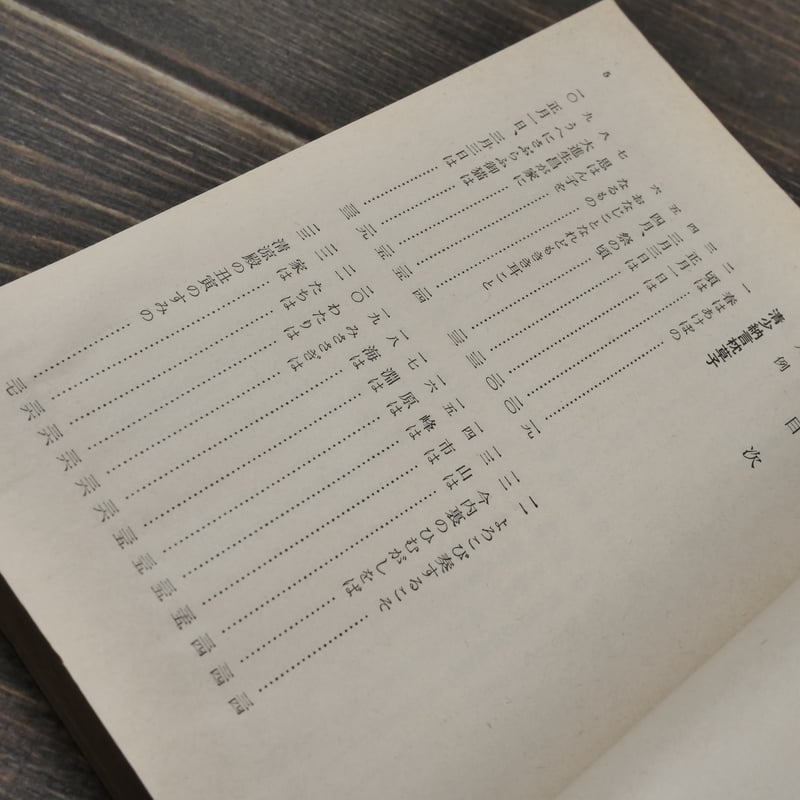 目次
例
清少納言枕草子
一 春はあけぼの 一九
二 頃は 二〇
三 正月一日は 二〇
四 三月三日は
五 四月、祭の頃
六 おなじことなれどもきき耳こと
なるもの
七 思はん子を
八 大進生昌が家に
九 うへにさぶらふ御猫は
一〇 正月一日、三月三日は
一一 よろこび奏するこそ 三四
一二 今内裏のひむがしをば 三四
一三 山は 三四
一四 市は 三五
一五 峰は 三五
一六 原は 三五
一七 淵は 三六
一八 海は 三六
一九 みささぎは 三六
二〇 わたりは 三六
二一 たちは 三六
二二 家は 三六
二三 清涼殿の丑寅のすみの 三九
5